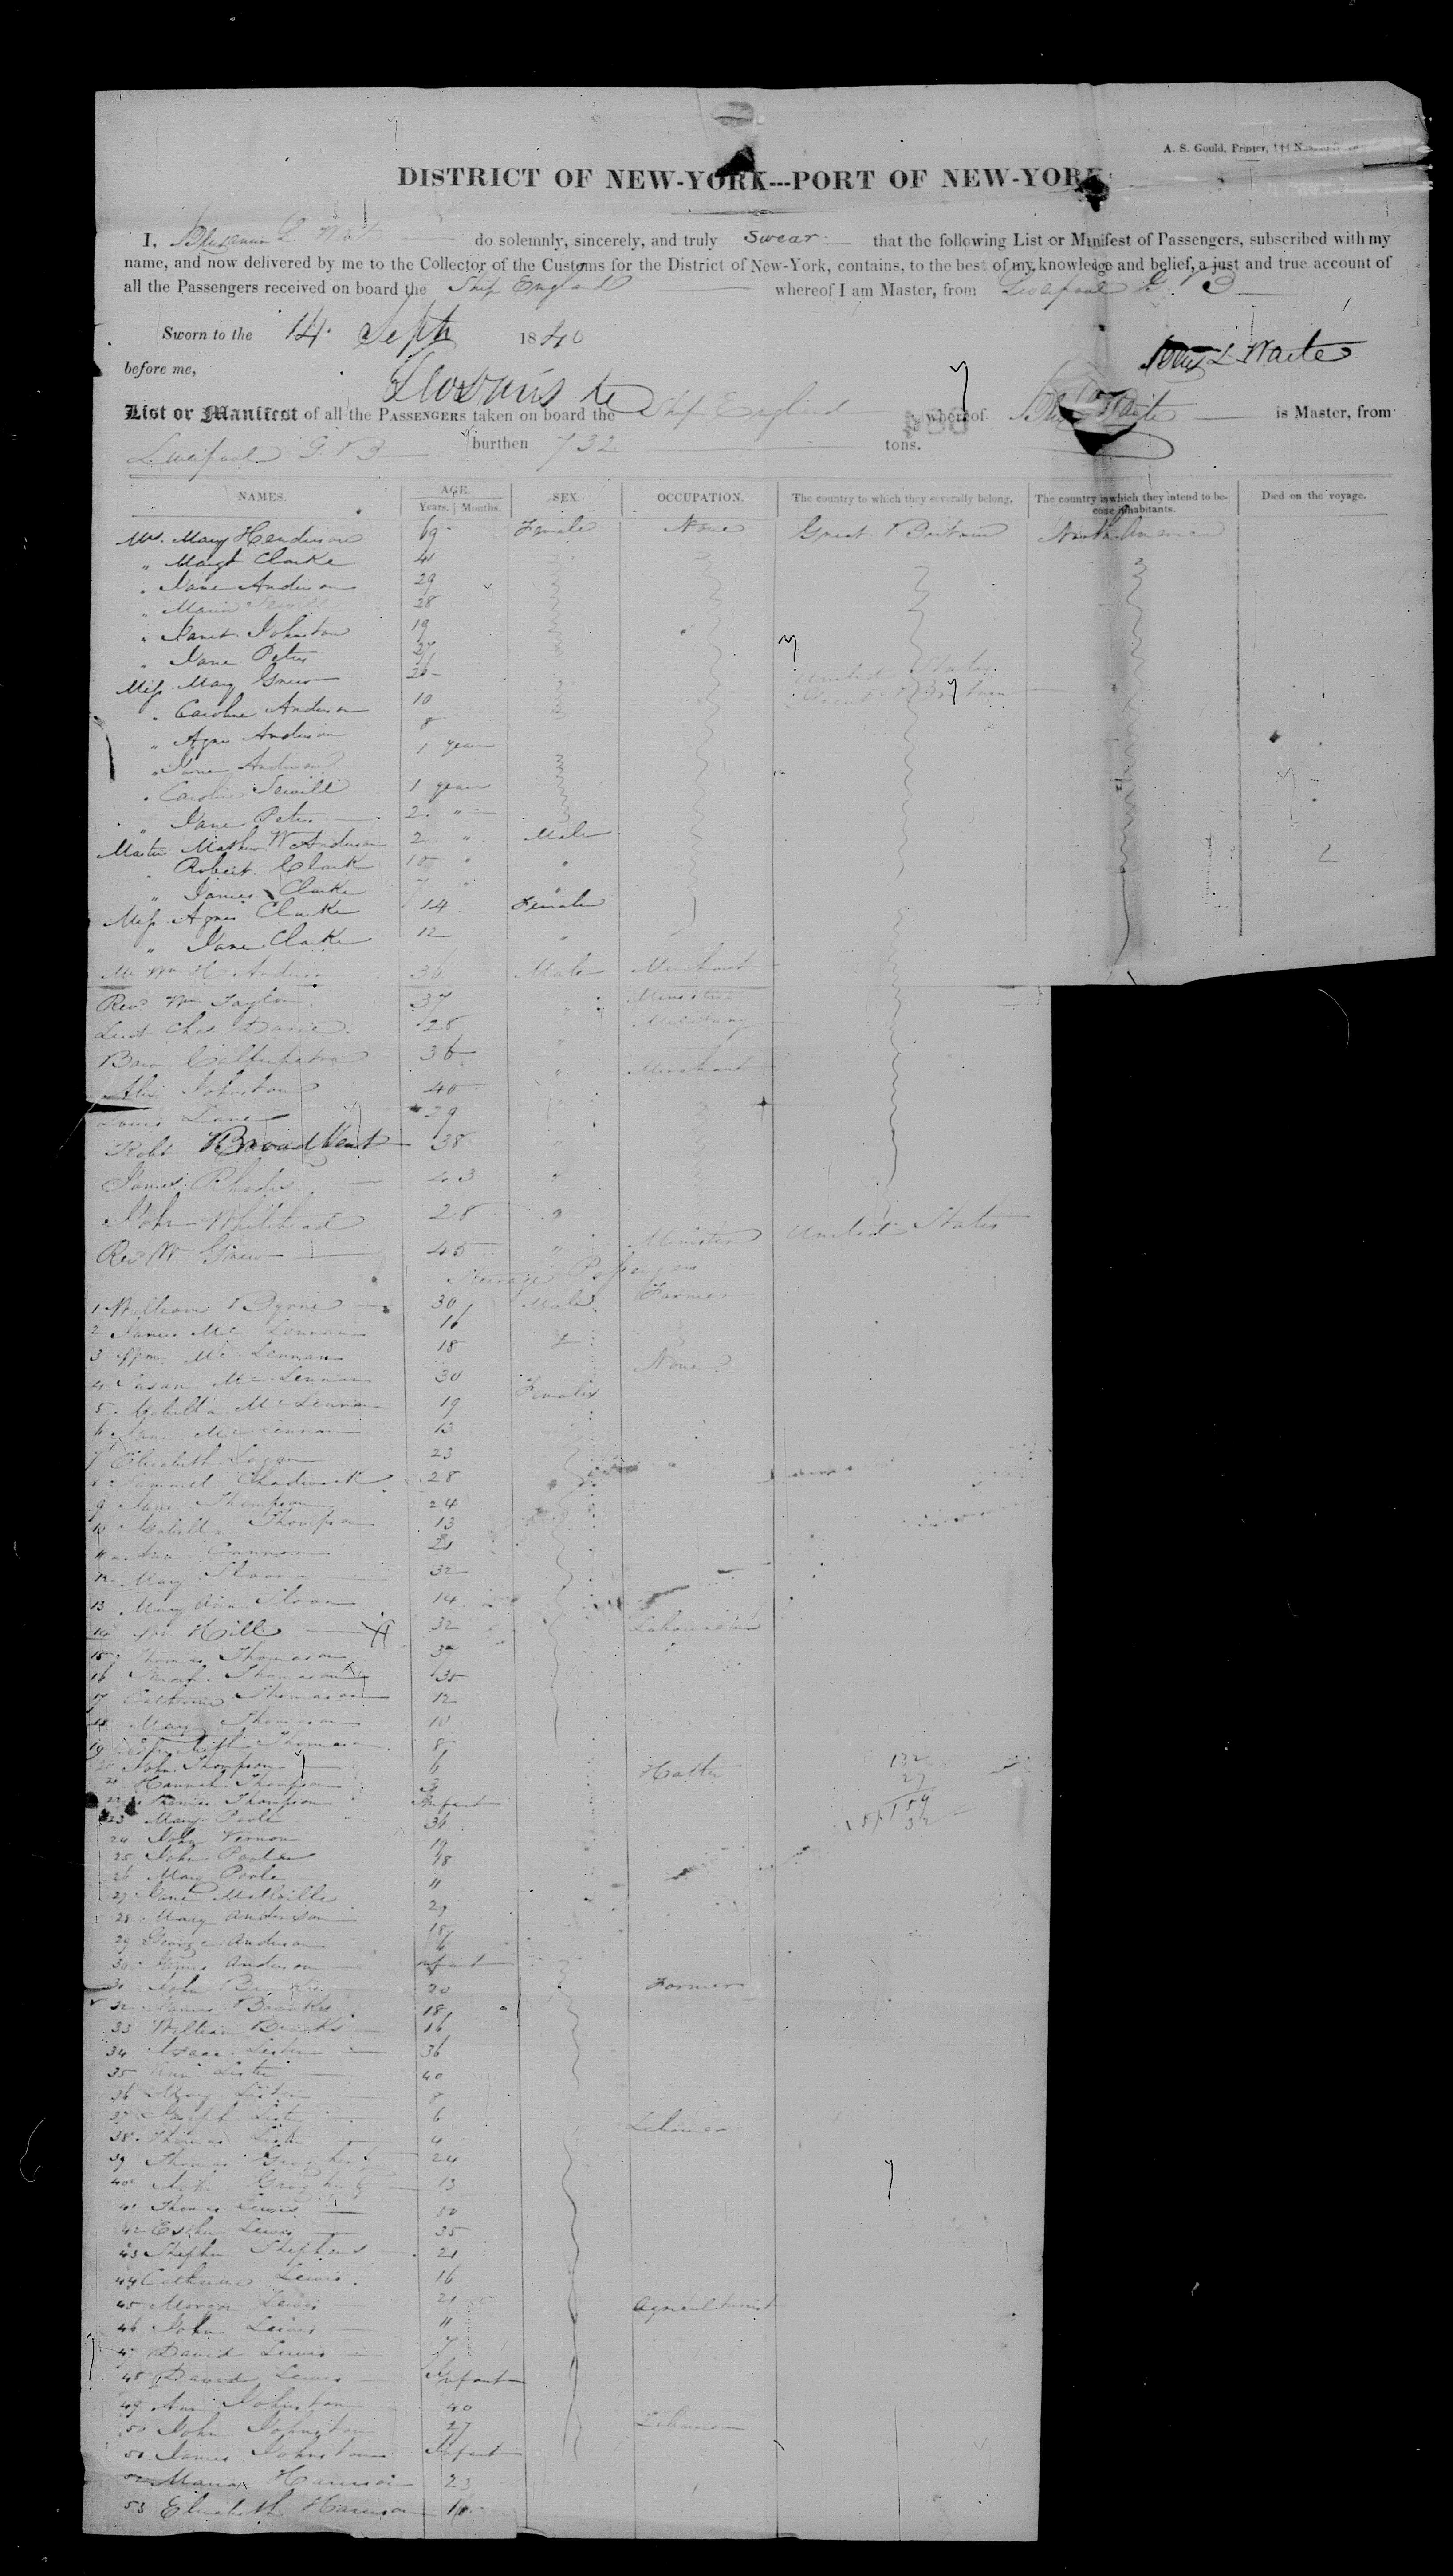 A. S. Gould, Printer, 144
DISTRICT OF NEW-YORK---PORT OF NEW-YORK
I, Benjamin L. Waite do solemnly, sincerely, and truly swear that the following List or Manifest of Passengers, subscribed with my
name, and now delivered by me to the Collector of the Customs for the District of New-York, contains, to the best of my knowledge and belief, a just and true account of
all the Passengers received on board the Ship England whereof I am Master, from Liverpool G. B
Sworn to the 14 Septr 1840
L. Waite
before me,
List or Manifest of all the PASSENGERS taken on board the Ship England whereof Waite is Master, from
Liverpool G B burthen 732 tons.
NAMES. AGE. Years. Months. SEX. OCCUPATION. The country to which they severally belong. The country in which they intend to become inhabitants. Died on the voyage.
Mrs. Mary Henderson 69 Female None Great Britain North America
" Margt Clarke 41
" Jane Anderson 29
" Maria Sewill 28
" Janet Johnston 19
" Jane Peters 27
Miss Mary Grew 26 United States
" Caroline Anderson 10 Great Britain
" Agnes Anderson 8
" Jane Anderson 1 year
" Caroline Sewill 1 year
" Jane Peters 2 "
Master Mathew W Anderson 2 " Male
" Robert Clark 10 " "
" James Clarke 7 " "
Miss Agnes Clarke 14 Female
" Jane Clarke 12 "
Mr Wm H Anderson 36 Male Merchant
Revd Wm Taylor 37 " Minister
Lieut Chas Davie 28 " Military
36 " Merchant
Alex Johnston 40 "
Louis Lane 29 "
Robt Broadbent 38 "
James Rhodes 43 "
John Whitehead 28 "
Revd W. Grew 45 " Minister United States
Steerage Passengers
1 William Byrne 30 Male Farmer
2 James Mc Lennan 16
3 Wm. Mc Lennan 18
4 Susan Mc Lennan 30 Females None
5 Isabella Mc Lennan 19
6 Jane Mc Lennan 13
7 Elizabeth Logan 23
8 Sammel Chadwick 28
9 Jane Thompson 24
10 Isabella Thompson 13
11 Ann 21
12 Mary Sloan 32
13 Mary Ann Sloan 14
14 Wm Hill 32 Labourer
15 Thomas Thomason 37
16 Sarah Thomason 35
17 Catherine Thomason 12
18 Mary Thomason 10
19 Elizabeth Thomason 8
20 John Thompson 6 Hatter
21 Hannah Thompson 3
22 Thomas Thompson Infant
23 Mary Poole 36
24 John Vernon 19
25 John Poole 18
26 Mary Poole 11
27 Jane Mellville 29
28 Mary Anderson 18
29 George Anderson 6
30 James Anderson Infant
31 John Brooks 20 Farmer
32 James Brooks 18
33 William Brooks 16
34 Isaac Lister 36
35 Ann Lister 40
36 Lister 8
37 Joseph Lister 6
38 Thomas Lister 4 Labourer
39 Thomas 24
40 John 13
41 Thomas Lewis 50
42 Esther Lewis 35
43 Stephen Stephens 21
44 Catherine Lewis 16
45 Morgan Lewis 21 Agriculturist
46 John Lewis 11
47 David Lewis 7
48 David Lewis Infant
49 Ann Johnston 40
50 John Johnston 27 Labourer
51 James Johnston Infant
52 Maria Harrison 23
53 Elizabeth Harrison 16
132
27
159